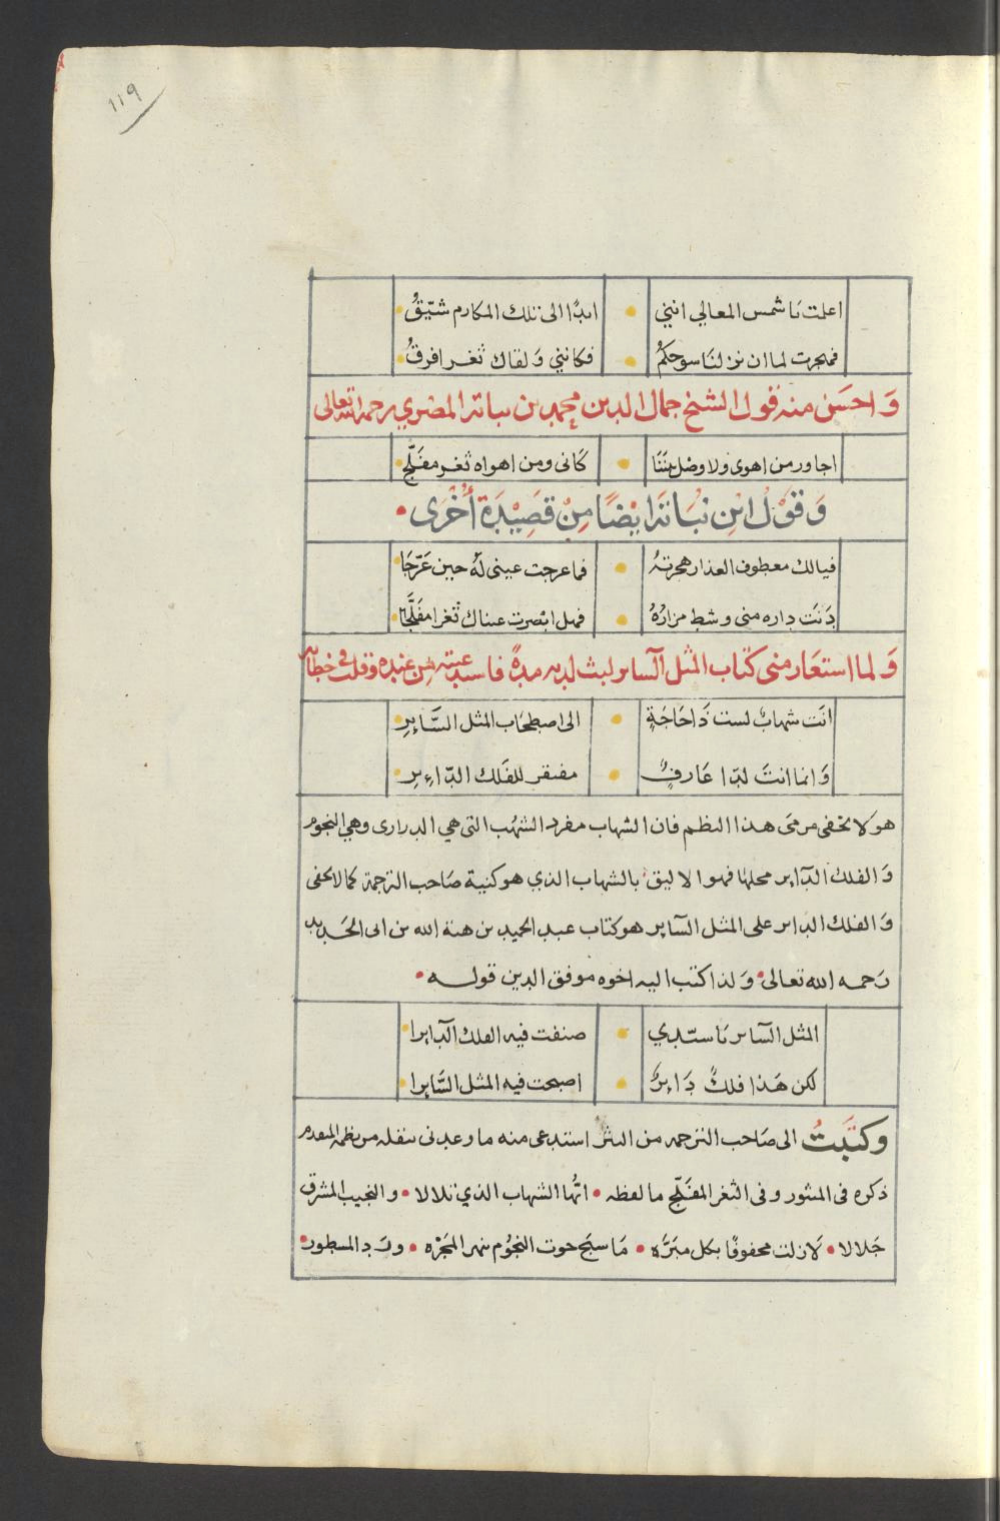 ١١٩
اعلت يا شمس المعالي انني • ابدًا الى تلك المكارم شيّقُ •
فهجرت لما ان نزلنا سوحكمُ • فكانني ولقاك ثغر افرقُ •
وَاحسَن منه قول الشيخ جمال الدين محمد بن نباته المصري رحمه الله تعالى
اجاور من اهوى ولا وصل بيننا • كانى ومن اهواه ثغر مفلّج •
وَقَوْلُ ابْنِ نُبَاتَة ايْضًا مِنْ قَصِيْدَة أُخْرَى •
فيا لك معطوف العذار هجرتهُ • فما عرجت عينى لهُ حين عَرّجَا •
دَنَت داره منى وشط مزارُهُ • فهل ابْصرت عيناك ثغرا مفلَّجا •
وَلما استعَار منى كتاب المثل السآير لبث لديه مدةً فاستدعيته من عنده وقلت فى خطابه
انَت شهابٌ لست ذَا حَاجَةٍ • الى اصطحَاب المثل السَّايرِ •
وَانما انتَ لبدا عَارفٌ • مفتقر للفَلك الدّاءيرِ •
هو كما لا تخفى مرمىَ هذا النظم فان الشهاب مفرد الشهُب التى هي الدرارى وهي النجوم
وَالفلك الدآير محلها فهو الاليق بالشهاب الذي هو كنية صَاحب الترجمة كما لا يخفى
وَالفلك الداير على المثل السآير هو كتاب عبد الحميد بن هبة الله بن ابى الحَديد
رَحمه الله تعالى • وَلذا كتب اليه اخوه موفق الدين قوله •
المثل السآير يَا سيّدي • صنفت فيه الفلك الدآيرا •
لكن هَذا فلكٌ دَايرٌ • اصبحت فيه المثل السَّايرا •
وكتَبتُ الى صَاحب الترجمه من النثر استدعى منه ما وعدنى بنقله من نظمه المتقدم
ذكره فى المنثور وفى الثغر المفلّج ما لفظه • ايُّها الشهاب الذي تلالا • والنجيب المشرق
جَلالا • لَازلت محفوفًا بكل مبَرَّة • مَا سبَح حوت النجُوم بنهر المجَرْه • ورَد المسطور •